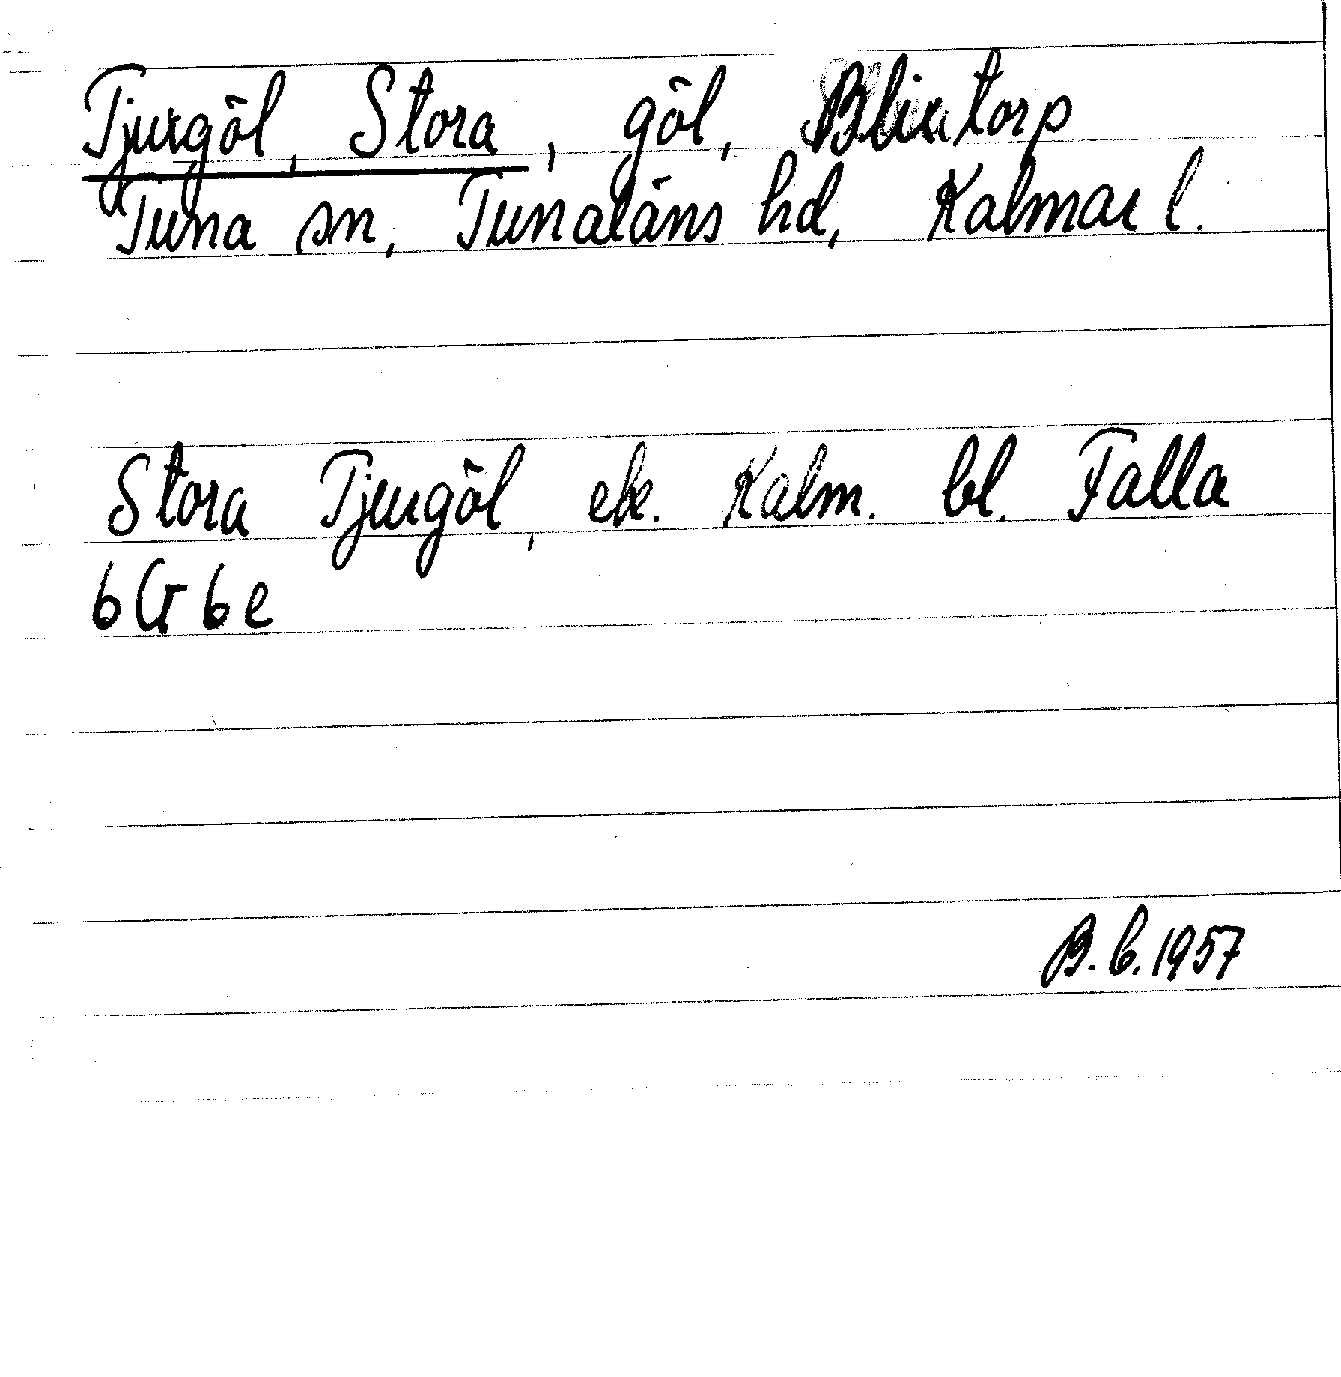 Tjurgöl, Stora, göl, Blixtorp
Tuna sn, Tunaläns hd, Kalmar l.
Stora Tjurgöl, ek. Kalm. bl. Falla
6G6e
B.b.1957